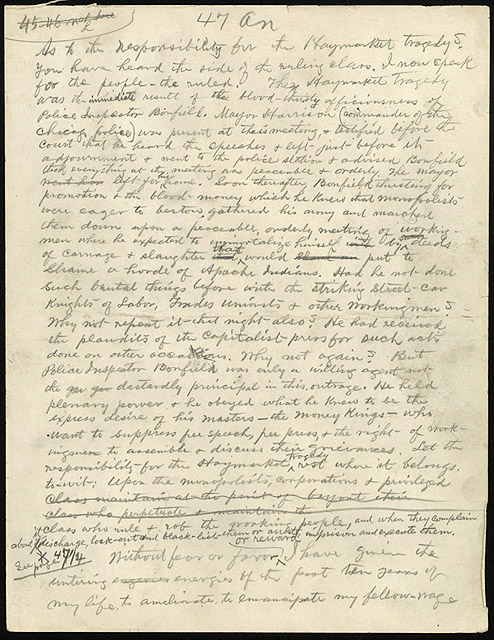 47 An
As to the responsibility for the Haymarket tragedy?
You have heard the side of the ruling class. I now speak
for the people – the ruled! The Haymarket tragedy
was the immediate result of the blood-thirsty officiousness of
Police Inspector Bonfield. Mayor Harrison (commander of the
Chicag police) was present at this meeting, & testified before the
Court that he heard the speeches & left just before its
adjournment & went to the police station & advised Bonfield
that everything at the meeting was peaceable & orderly. The mayor
left for home. Soon thereafter Bonfield thirsting for
promotion & the blood-money which he knew that monopolists
were eager to bestow, gathered his army and marched
them down upon a peaceable, orderly meeting of working-
men where he expected to immortalize himself by deeds
of carnage & slaughter that would put to
shame a horde of Apache Indians. Had he not done
such brutal things before with the striking street-car
Knights of Labor, Trades Unionists & other Workingmen?
Why not repeat it that night also? He had received
the plaudits of the Capitalist press for such acts
done on other occasions. Why not again? But
Police Inspector Bonfield was only a willing agent not
the dastardly principal in this outrage. He held
plenary power & he obeyed what he knew to be the
express desire of his masters – the Money Kings – who
want to suppress free speech, free press, & the right of work-
ingmen to assemble & discuss their grievances. Let the
responsibility for the Haymarket tragedy rest where it belongs,
to-wit: Upon the monopolists, corporations & privileged
class who perpetuate & maintain the
class who rule & rob the working people, and when they complain
discharge, lock-out and black-list them or arrest, imprison and execute them.
47/4
Without fear or favor or reward I have given the
untiring energies of the past ten years of
my life, to ameliorate, to emancipate my fellow-wage